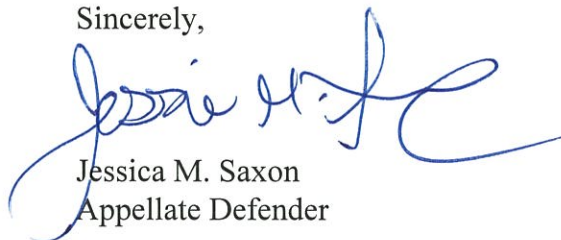 Sincerely,
Jessie M. S
Jessica M. Saxon
Appellate Defender